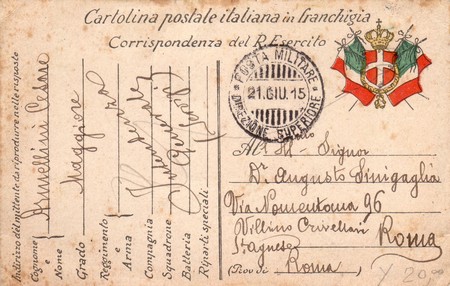 Cartolina postale italiana in franchigia
Corrispondenza del R. Esercito
POSTA MILITARE
21.GIU.15
DIREZIONE SUPERIORE
Al Sig. Signor
Dr. Augusto Sinigaglia
Via Nomentana 96
Villino Crivellari
S. Agnese Roma
(Prov. di Roma)
20,00
Indirizzo del mittente da riprodurre nelle risposte
Cognome e Nome Armellini Cesare
Grado Maggiore
Reggimento e Arma
Compagnia Intendenza
Squadrone
Batteria
Riparti speciali